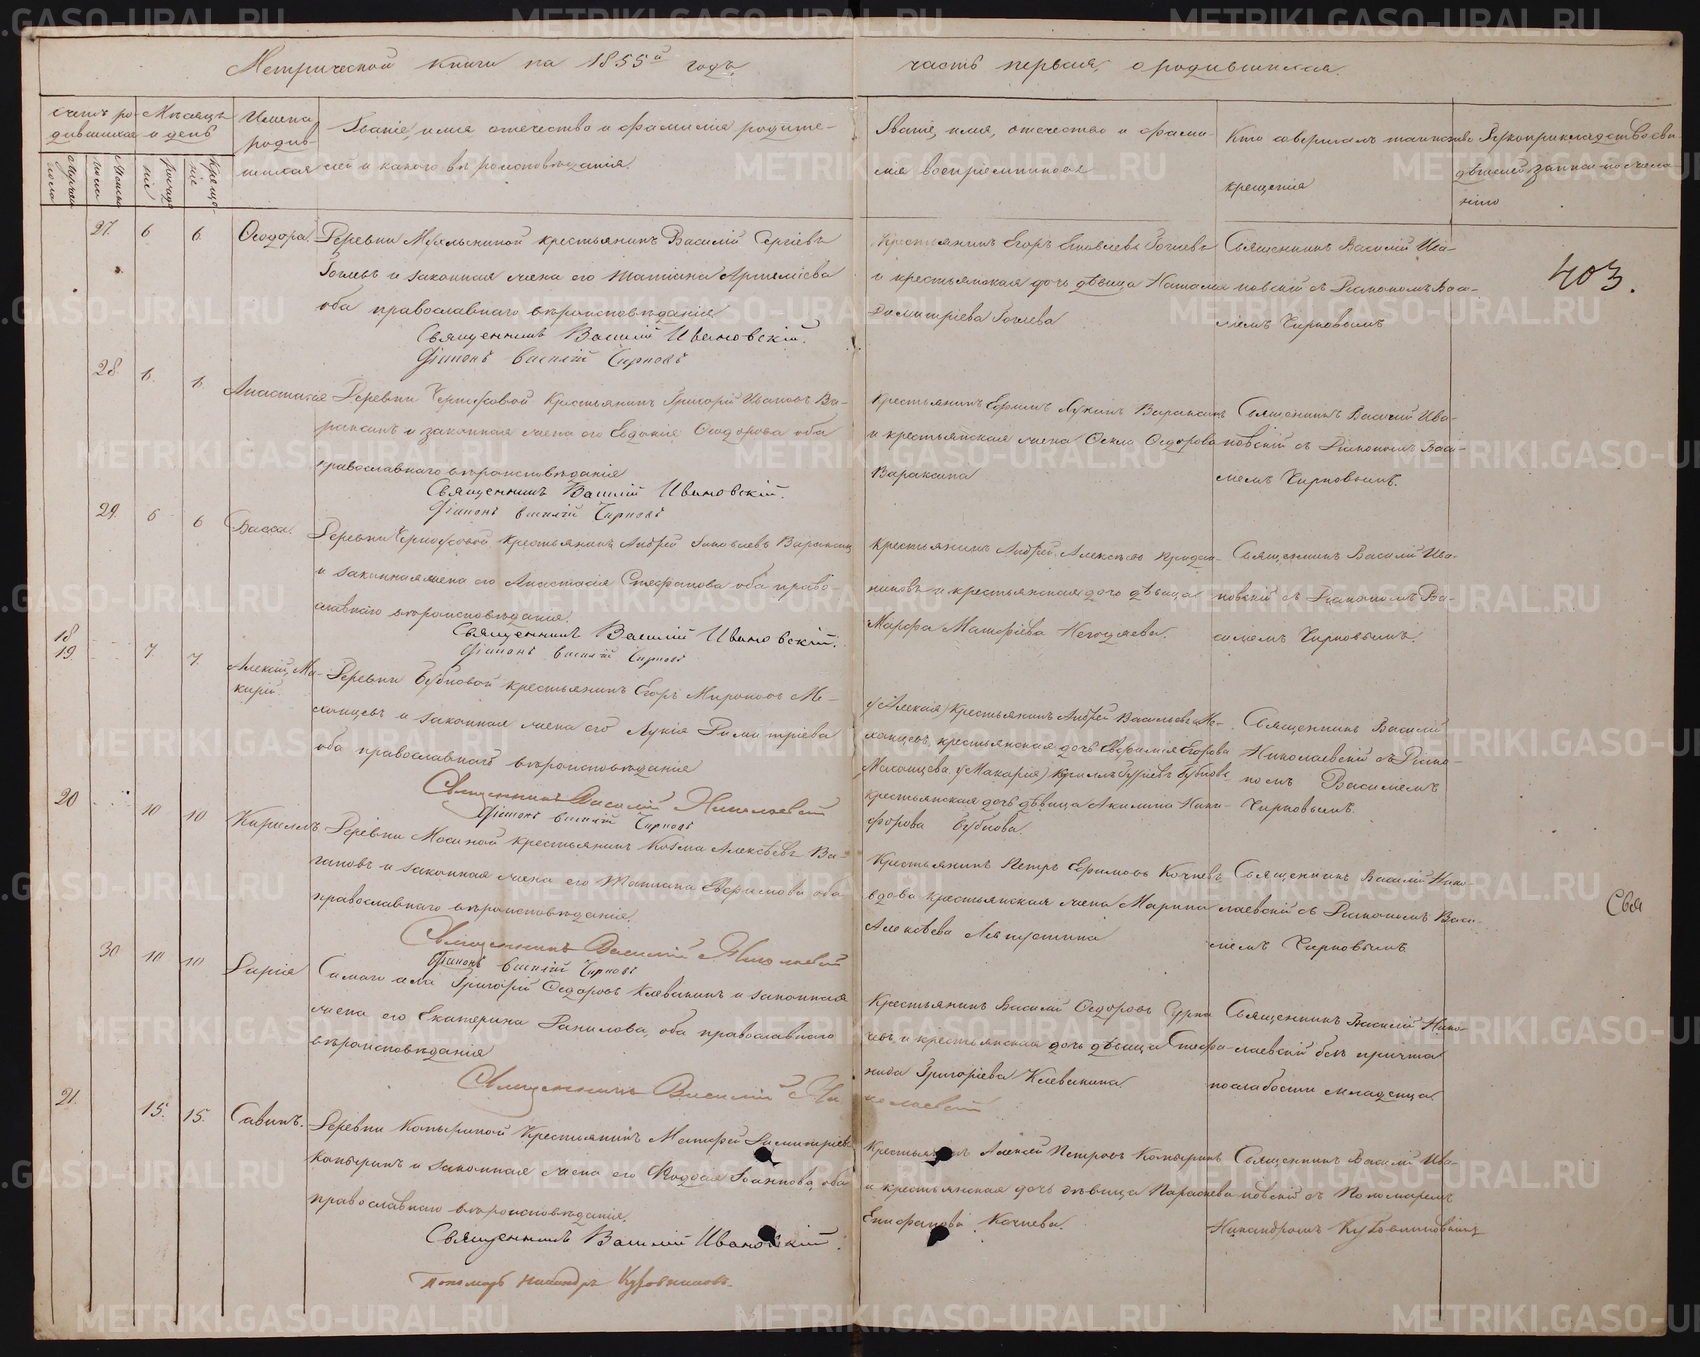 Метрической книги на 1855й годъ
часть первая, о родившихся.
Счетъ ро-
дившихся
Мѣсяцъ
и день
Имена
родив-
шихся
Званіе, имя отечество и фамилія родите-
лей и какого вѣроисповѣданія.
Званіе, имя, отечество и фами-
лія воспріемниковъ
Кто совершалъ таинство
крещенія
Рукоприкладство сви-
дѣтелей записи по жела-
нію
27. 6 6 Ѳеодора. Деревни крестьянинъ Василій Сергіевъ
и законная жена его Татіана Артеміева
оба православнаго вѣроисповѣданія
Священникъ Василій Ивановскій.
Діаконъ Василій Чирковъ
Крестьянинъ Егоръ Яковлевъ
и крестьянская дочь дѣвица Наталія
Димитріева
Священникъ Василій Ива-
новскій съ Діакономъ Васи-
ліемъ Чирковымъ
403.
28. 6. 6. Анастасія Деревни крестьянинъ Григорій Ивановъ Ва-
раксинъ и законная жена его Евдокія Ѳеодорова оба
православнаго вѣроисповѣданія
Священникъ Василій Ивановскій.
Діаконъ Василій Чирковъ
Крестьянинъ Ефимъ Лукинъ Вараксинъ
и крестьянская жена Ѳекла Ѳедорова
Вараксина
Священникъ Василій Ива-
новскій съ Діакономъ Васи-
ліемъ Чирковымъ.
29. 6 6 Васса. Деревни крестьянинъ Андрей Яковлевъ Вараксинъ
и законная жена его Анастасія Стефанова оба право-
славнаго вѣроисповѣданія.
Священникъ Василій Ивановскій.
Діаконъ Василій Чирковъ
Крестьянинъ Андрей Алексѣевъ
и крестьянская дочь дѣвица
Марѳа Матѳіева
Священникъ Василій Ива-
новскій съ Діакономъ Ва-
силіемъ Чирковымъ.
18
19. 7 7. Алексій, Ма-
карій.
Деревни Бубновой крестьянинъ Егоръ Мироновъ
и законная жена его Лукія Димитріева
оба православнаго вѣроисповѣданія
Священникъ Василій Николаевскій
Діаконъ Василій Чирковъ
у (Алексія) крестьянинъ Андрей Васильевъ
крестьянская дочь Евфимія Егорова
у (Макарія) Кириллъ Бубновъ
крестьянская дочь дѣвица Акилина Ники-
форова Бубнова.
Священникъ Василій
Николаевскій съ Діако-
номъ Василіемъ
Чирковымъ.
20 10 10 Кириллъ Деревни крестьянинъ Козма Алексѣевъ Ва-
гановъ и законная жена его Татіана Ефимова оба
православнаго вѣроисповѣданія.
Священникъ Василій Николаевскій
Діаконъ Василій Чирковъ
Крестьянинъ Петръ Ефимовъ Кочневъ
вдова крестьянская жена Марина
Алексѣева
Священникъ Василій Нико-
лаевскій съ Діакономъ Васи-
ліемъ Чирковымъ
Свя
30 10 10 Дарія Самаго села Григорій Ѳедоровъ Клевакинъ и законная
жена его Екатерина Данилова, оба православнаго
вѣроисповѣданія
Священникъ Василій Николаевскій
Крестьянинъ Василій Ѳедоровъ
и крестьянская дочь дѣвица Стефа-
нида Григоріева Клевакина.
Священникъ Василій Нико-
лаевскій безъ причта
по слабости младенца.
21. 15. 15. Савинъ. Деревни Копыриной Крестьянинъ Матѳей Димитріевъ
Копыринъ и законная жена его Іоаннова, оба
православнаго вѣроисповѣданія.
Священникъ Василій Ивановскій.
Пономарь Никандръ
Крестьянинъ Алексѣй Петровъ Копыринъ
и крестьянская дочь дѣвица Параскева
Епифанова Кочнева
Священникъ Василій Ива-
новскій съ Пономаремъ
Никандромъ
METRIKI.GASO-URAL.RU